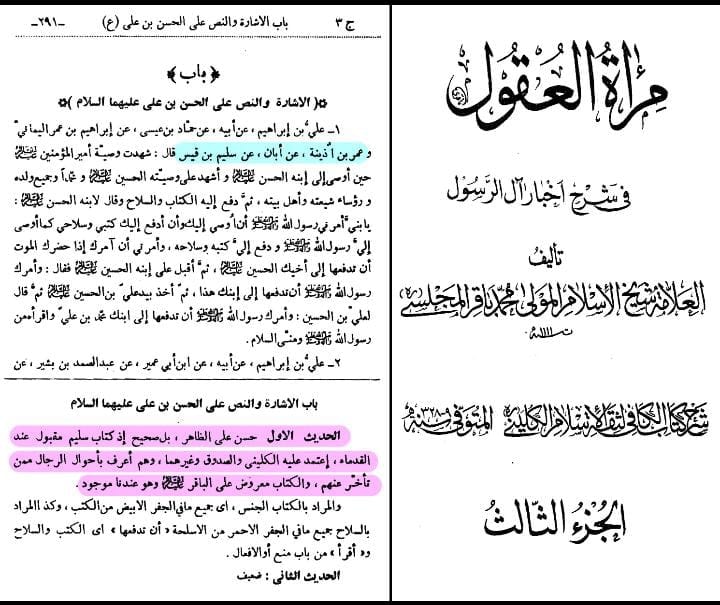 ج ٣
باب الاشارة والنص على الحسن بن على (ع)
-٢٩١-
﴿ باب ﴾
✡( الاشارة والنص على الحسن بن على عليهما السلام )✡
١- عليُّ بن إبراهيم ، عن أبيه ، عن حمّاد بن عيسى ، عن إبراهيم بن عمر اليمانيّ
و عمر بن اُذينة ، عن أبان ، عن سليم بن قيس قال : شهدت وصيّة أمير المؤمنين عليه السلام
حين أوصى إلى إبنه الحسن عليه السلام و أشهد على وصيّته الحسين عليه السلام و محمّداً وجميع ولده
و رؤساء شيعته وأهل بيته ، ثمَّ دفع إليه الكتاب والسلاح وقال لابنه الحسن عليه السلام :
يا بنيَّ أمرني رسول الله صلى الله عليه وآله أن اُوصي إليك وأن أدفع إليك كتبي وسلاحي كما أوصى
إليَّ رسول الله صلى الله عليه وآله و دفع إليَّ كتبه وسلاحه ، وأمرني أن آمرك إذا حضرك الموت
أن تدفعها إلى أخيك الحسين عليه السلام ، ثمَّ أقبل على إبنه الحسين عليه السلام فقال : وأمرك
رسول الله صلى الله عليه وآله أن تدفعها إلى إبنك هذا ، ثمَّ أخذ بيد عليّ بن الحسين عليه السلام ثمَّ قال
لعليّ بن الحسين : وأمرك رسول الله صلى الله عليه وآله أن تدفعها إلى ابنك محمّد بن عليّ واقرأه من
رسول الله صلى الله عليه وآله ومنّي السلام .
٢- عليُّ بن إبراهيم ، عن أبيه ، عن ابن أبي عمير ، عن عبدالصمد بن بشير ، عن
باب الاشارة والنص على الحسن بن على عليهما السلام
الحديث الاول حسن على الظاهر ، بل صحيح إذ كتاب سليم مقبول عند
القدماء ، إعتمد عليه الكلينى والصدوق وغيرهما ، وهم أعرف بأحوال الرجال ممن
تأخّر عنهم ، والكتاب معروض على الباقر عليه السلام وهو عندنا موجود .
والمراد بالكتاب الجنس ، اى جميع ما في الجفر الابيض من الكتب ، وكذا المراد
بالسلاح جميع ما في الجفر الاحمر من الاسلحة « أن تدفعها » اى الكتب والسلاح
و« أقرأ » من باب منع أو الافعال .
الحديث الثانى : ضعيف
مرآة العقول
في شرح أخبار آل الرسول
تأليف
العلامة شيخ الاسلام المولى محمد باقر المجلسي
شرح كتاب الكافي لثقة الاسلام الكليني المتوفى سنة ٣٢٨-٩ هـ
الجزء الثالث